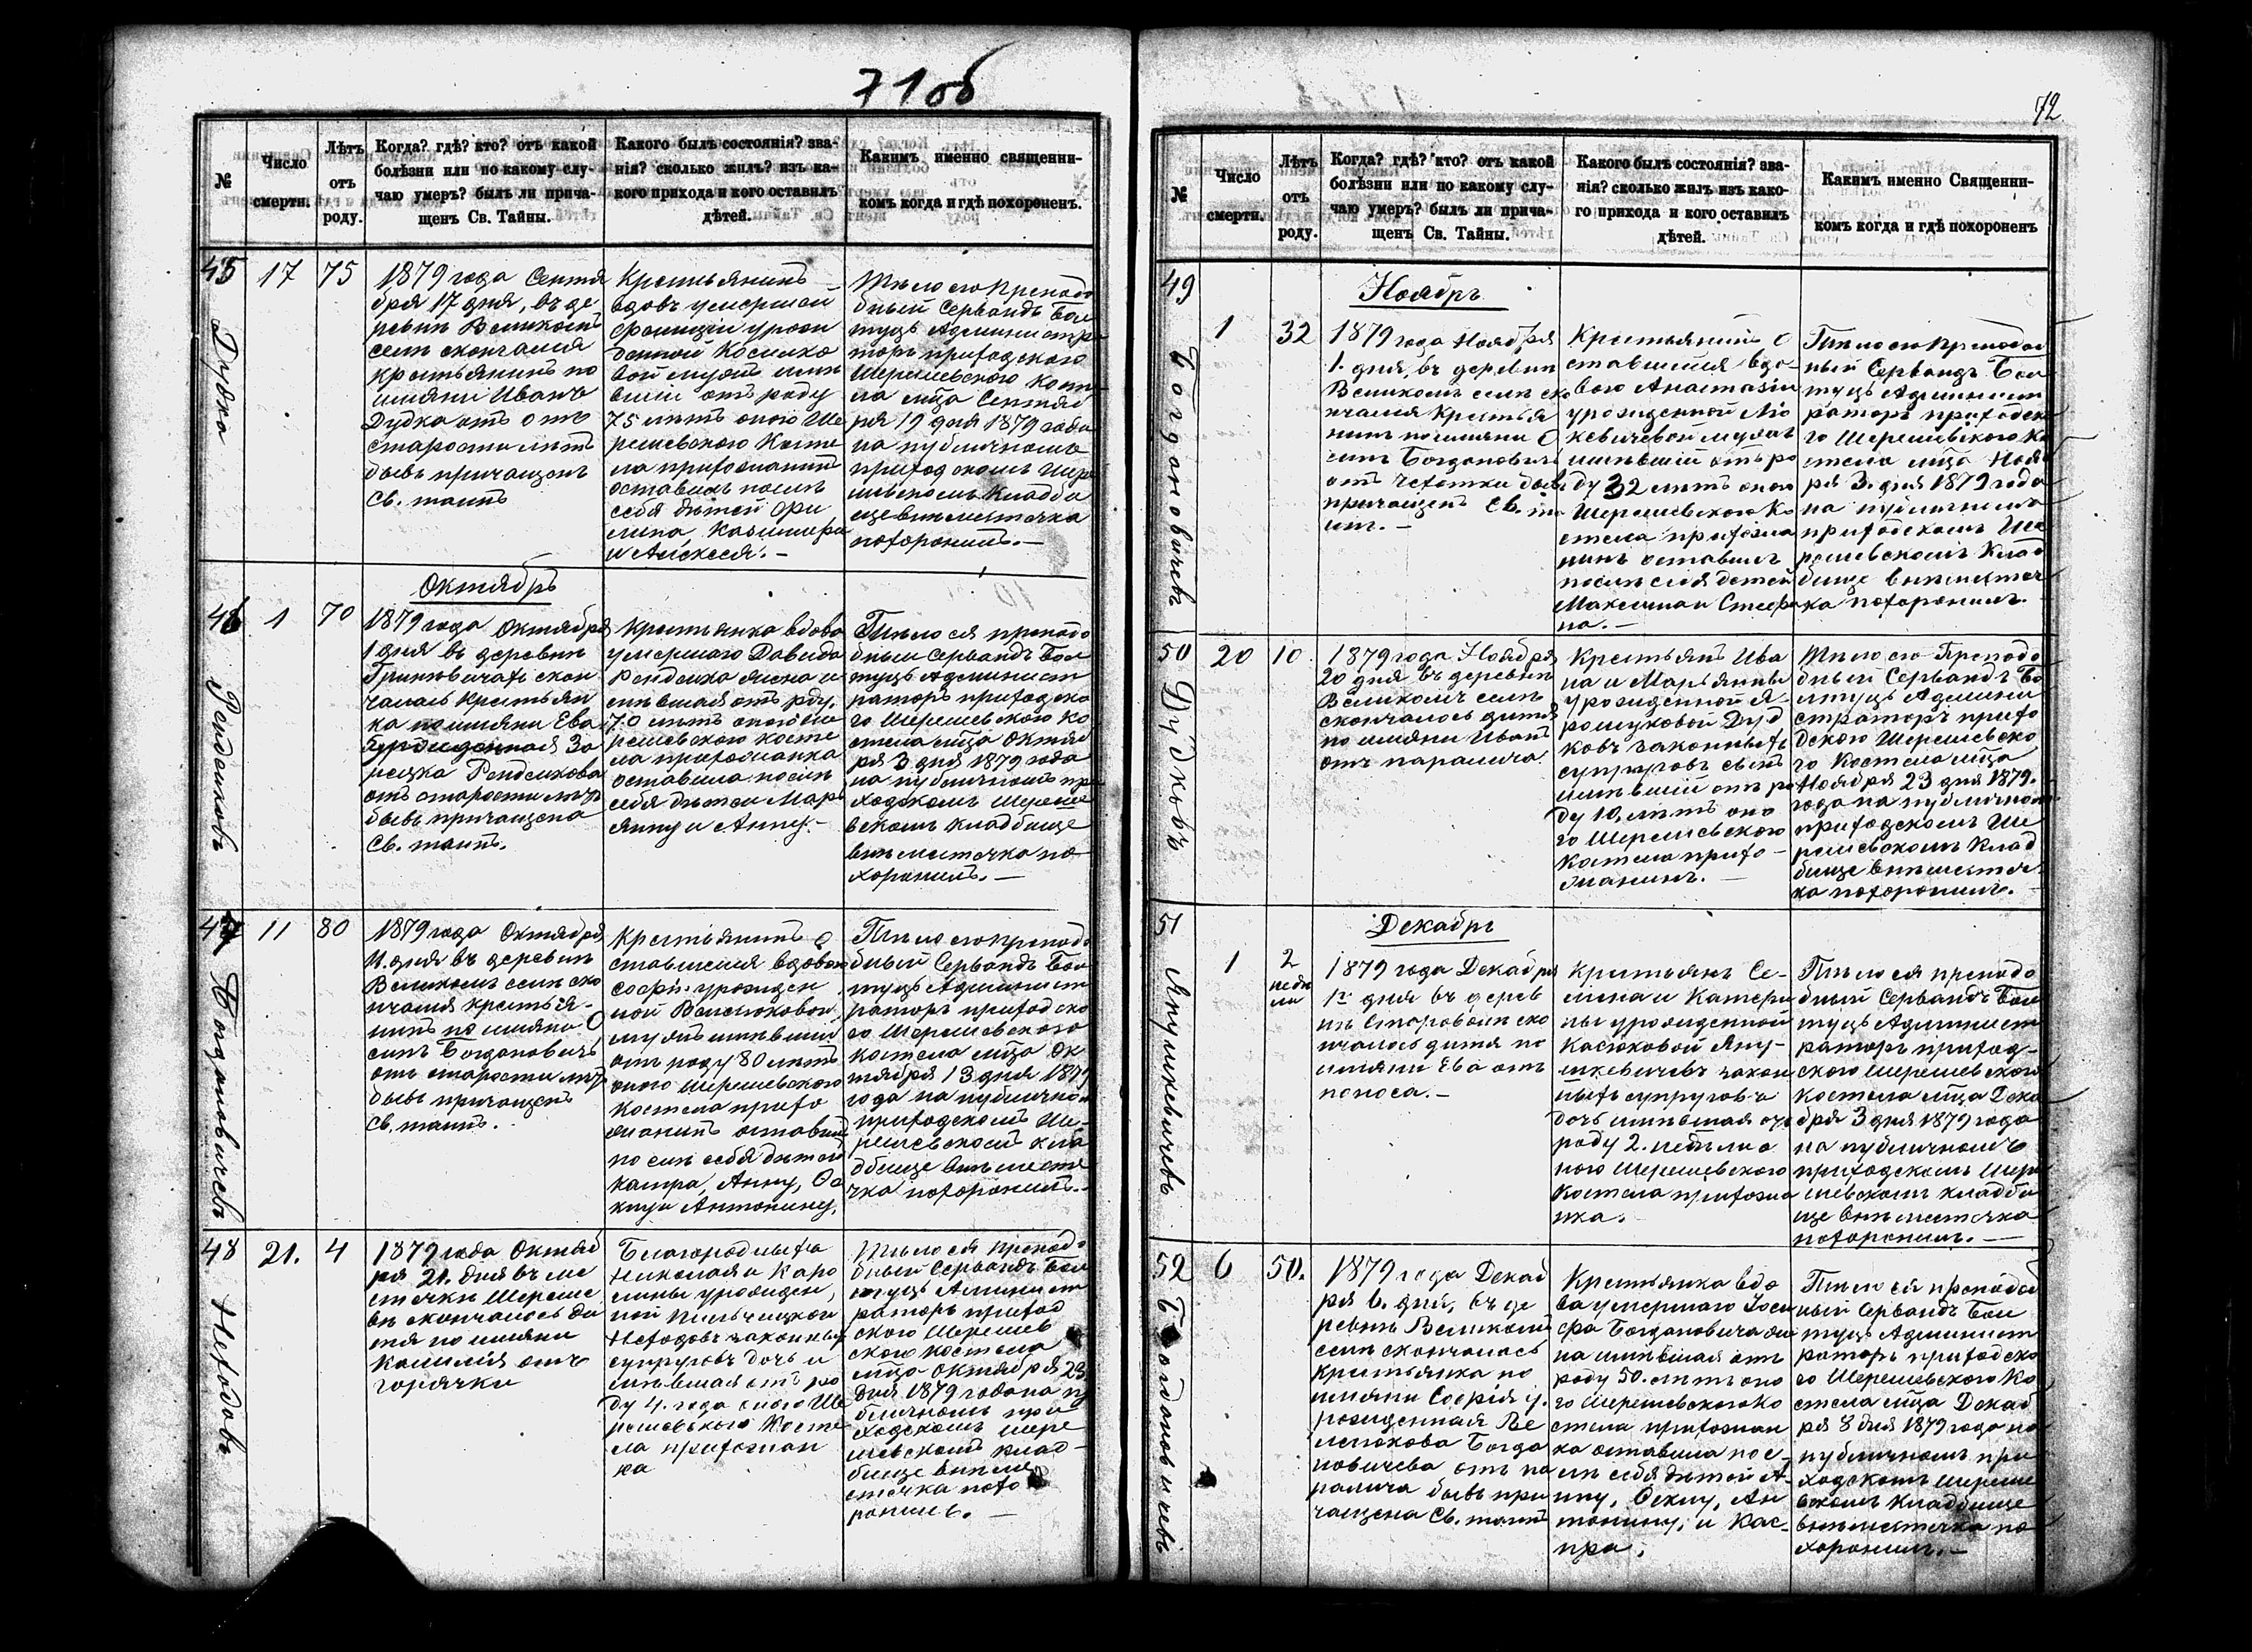 71об
№
Число
смерти.
Лѣтъ
отъ
роду.
Когда? гдѣ? кто? отъ какой
болѣзни или по какому слу-
чаю умеръ? былъ ли прича-
щенъ Св. Тайны.
Какого былъ состоянія? зва-
нія? сколько жилъ? изъ ка-
кого прихода и кого оставилъ
дѣтей.
Какимъ именно священни-
комъ когда и гдѣ похороненъ.
45
Дудка
17
75
1879 года Сентя
бря 17 дня, въ де
ревнѣ Великомъ
селѣ скончался
крестьянинъ по
имяни Иванъ
Дудка отъ
старости лѣтъ
бывъ причащенъ
Св. таинъ
Крестьянинъ
вдовъ умершей
урож
денной
75 лѣтъ оного Ше
решевского Косте
ла прихожанинъ
оставилъ послѣ
себя дѣтей
Казимира
и Алексея. —
Тѣло его преподо
бный Сервандъ
Администра
торъ приходского
Шерешевского Косте
ла мца Сентяб
ря 19 дня 1879 года
на публичномъ
приходскомъ Шере
шевскомъ Кладби
ще внѣ местечка
похоронилъ. —
Октябрь
46
1
70
1879 года Октября
1 дня въ деревни
скон
чалась Крестьян
ка по имяни Ева
урожденная За
рецка
отъ старости лѣтъ
бывъ причащена
Св. таинъ.
Крестьянка вдова
умершаго Давида
жена и
мѣвшая отъ роду
70 лѣтъ оного Ше
решевского косте
ла прихожанка
оставила послѣ
себя дѣтей Марь
янну и Анну. —
Тѣло ея преподо
бный Сервандъ
Админист
раторъ приходско
го Шерешевского ко
стела мца Октяб
ря 3 дня 1879 года
на публичномъ при
ходскомъ Шереше
вскомъ кладбище
внѣ местечка по
хоронилъ. —
47
Богдановичевъ
11
80
1879 года Октября
11. дня въ деревни
Великомъ селѣ ско
нчался крестья-
нинъ по имяни О
сипъ Богдановичъ
отъ старости лѣтъ
бывъ причащенъ
Св. таинъ.
Крестьянинъ о
ставшеися вдовою
Софіи урожден
ной Велесюковой
мужъ имѣвшій
отъ роду 80 лѣтъ
оного Шерешевского
Костела прихо
жанинъ оставилъ
послѣ себя дѣтей
Каспра, Анну,
и Антонину.
Тѣло его преподо
бный Сервандъ
Админист
раторъ приходско
го Шерешевского
костела мца Ок
тября 13 дня 1879
года на публичномъ
приходскомъ Ше-
решевскомъ кла
дбище внѣ месте
чка похоронилъ.
48
Неходовъ
21.
4
1879 года Октяб
ря 21. дня въ ме
стечки Шереше
вѣ скончалось ди
тя по имяни
Камилія отъ
горячки
Благородныхъ
Николая и Каро
лины урожден
ной
Неходовъ законныхъ
супруговъ дочь и
мѣвшая отъ ро
ду 4. года оного Ше
решевского Косте
ла прихожан
ка
Тѣло ея преподо
бный Сервандъ
Админист
раторъ приход
ского Шерешев
ского костела
мца Октября 23
дня 1879 года на пу
бличномъ при
ходскомъ Шере
шевскомъ клад-
бище внѣ ме
стечка похо
ронилъ. —
72
№
Число
смерти.
Лѣтъ
отъ
роду.
Когда? гдѣ? кто? отъ какой
болѣзни или по какому слу-
чаю умеръ? былъ ли прича-
щенъ Св. Тайны.
Какого былъ состоянія? зва-
нія? сколько жилъ изъ како-
го прихода и кого оставилъ
дѣтей.
Какимъ именно Священни-
комъ когда и гдѣ похороненъ
49
Богдановичевъ
Ноябрь
1
32
1879 года Ноября
1. дня, въ деревни
Великомъ селѣ ско
нчался Крестья
нинъ по имяни О
сипъ Богдановичъ
отъ чахотки бывъ
причащенъ Св. та
инъ. —
Крестьянинъ о
ставшеися вдо-
вою Анастазіи
урожденной
мужъ
имѣвшій отъ ро
ду 32 лѣтъ оного
Шерешевского Ко
стела прихожа
нинъ оставилъ
послѣ себя дѣтей
Максима и Стефа
на. —
Тѣло его преподоб
ный Сервандъ
Админист
раторъ приходско
го Шерешевского Ко
стела мца Нояб
ря 3. дня 1879 года
на публичномъ
приходскомъ Ше
решевскомъ Клад
бище внѣ местеч
ка похоронилъ.
50
Дудковъ
20
10.
1879 года Ноября
20 дня въ деревнѣ
Великомъ селѣ
скончалось дитя
по имяни Иванъ
отъ паралича.
Крестьянъ Ива
на и Марьянны
урожденной Я-
рошуковой Дуд
ковъ законныхъ
супруговъ сынъ
имѣвшій отъ ро
ду 10. лѣтъ оно
го Шерешевского
Костела прихо-
жанинъ. —
Тѣло его Преподо
бный Сервандъ
Админи
страторъ прихо
дского Шерешевско
го Костела мца
Ноября 23 дня 1879.
года на публичномъ
приходскомъ Ше
решевскомъ Клад
бище внѣ местеч
ка похоронилъ. —
51
Янушкевичевъ
Декабрь
1
2
недѣ
ли
1879 года Декабря
1г дня въ дерев
нѣ Староволѣ ско
нчалось дитя по
имяни Ева отъ
поноса. —
Крестьянъ Се-
мена и Катери
ны урожденной
Касюковой Яну-
шкевичевъ закон
ныхъ супруговъ
дочь имѣвшая отъ
роду 2. недѣли о
ного Шерешевского
Костела прихожа
нка.
Тѣло ея преподо
бный Сервандъ
Админист
раторъ приход-
ского Шерешевского
Костела мца Дека
бря 3 дня 1879 года
на публичномъ
приходскомъ Шере
шевскомъ кладби
ще внѣ местечка
похоронилъ. —
52
Богдановичевъ
6
50.
1879 года Декаб
ря 6. дня, въ де
ревнѣ Великомъ
селѣ скончалась
крестьянка по
имяни Софія у.
рожденная Ве
лесюкова Богда
новичева отъ па
ралича бывъ при
чащена Св. таинъ
Крестьянка вдо
ва умершаго Іоси
фа Богдановича же
на имѣвшая отъ
роду 50. лѣтъ оно
го Шерешевского Ко
стела прихожан
ка оставила пос-
лѣ себя дѣтей А-
нну, Ан
тонину, и Кас-
пра.
Тѣло ея преподоб
ный Сервандъ
Админист
раторъ приходско
го Шерешевского Ко
стела мца Декаб
ря 8 дня 1879 года на
публичномъ при
ходскомъ Шереше
вскомъ кладбище
внѣ местечка по
хоронилъ. —